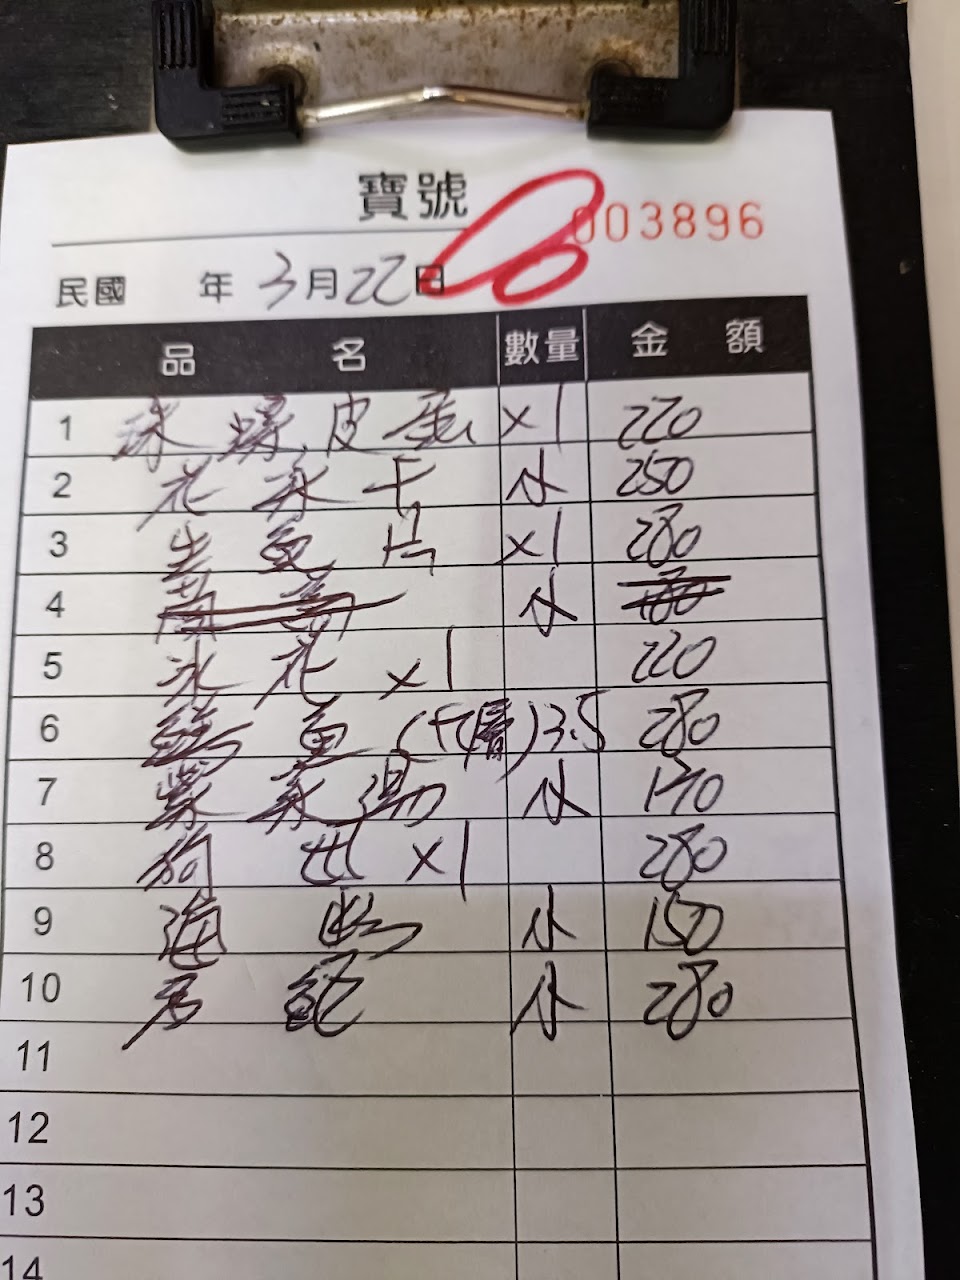 寶號
003896
民國 年 3月22日
品名 數量 金額
1 珠螺皮蛋 x1 220
2 花 干 小 250
3 生魚片 x1 280
4 小
5 水花 x1 220
6 魚 ( ) 3.5 280
7 紫菜湯 小 170
8 狗 x1 280
9 海 小 150
10 小 280
11
12
13
14